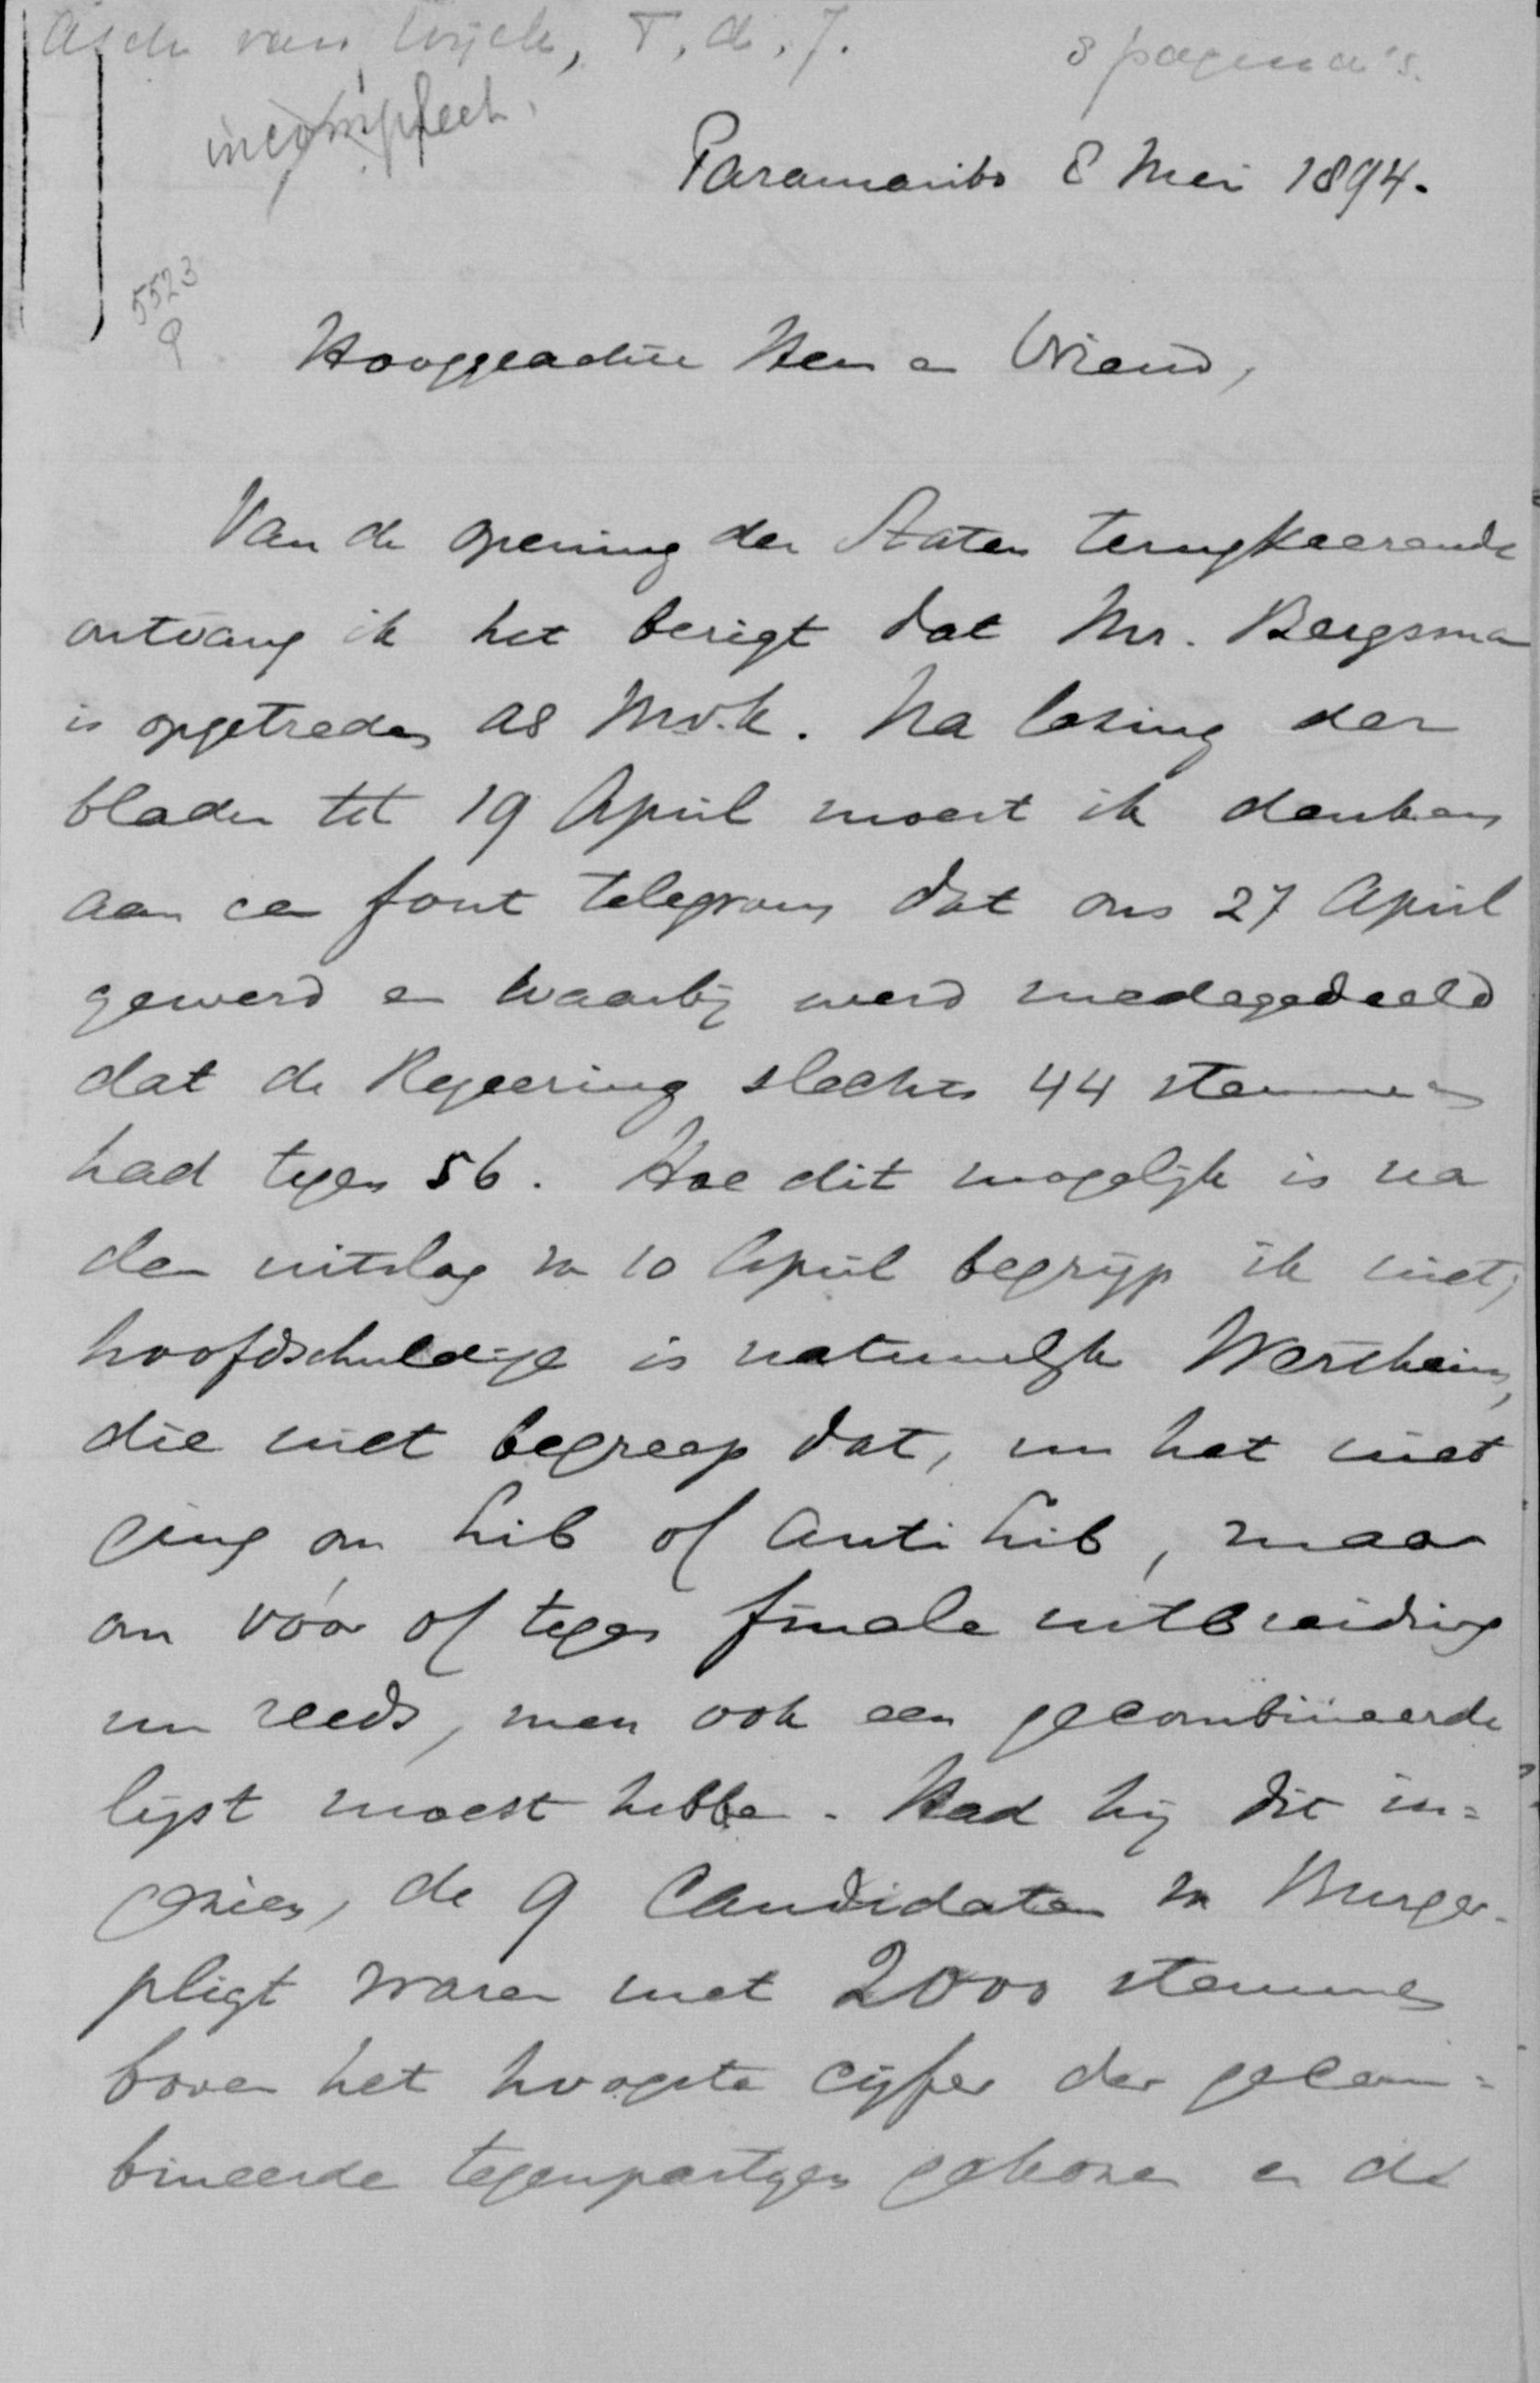 Asch van Wijck, T. d. J.
8 pagina's.
incompleet.
Paramaribo 8 Mei 1894.
5523
9
Hooggeachte Heer en Vriend,
Van de opening der Staten terugkeerende
ontvang ik het berigt dat Mr. Bergsma
is opgetreden als MvK. Na lezing der
bladen tot 19 April moest ik denken
aan een fout telegram dat ons 27 April
gewerd en waarbij werd medegedeeld
dat de Regeering slechts 44 stemmen
had tegen 56. Hoe dit mogelijk is na
den uitslag van 10 April begrijp ik niet;
hoofdschuldige is natuurlijk Wertheim,
die niet begreep dat, nu het niet
ging om lib of anti lib, maar
om vóór of tegen finale uitbreiding
nu reeds, men ook een gecombineerde
lijst moest hebben. Had hij dit in=
gezien, de 9 Candidaten van Burger-
pligt waren met 2000 stemmen
boven het hoogste cijfer der gecom=
bineerde tegenpartijen gekozen en de